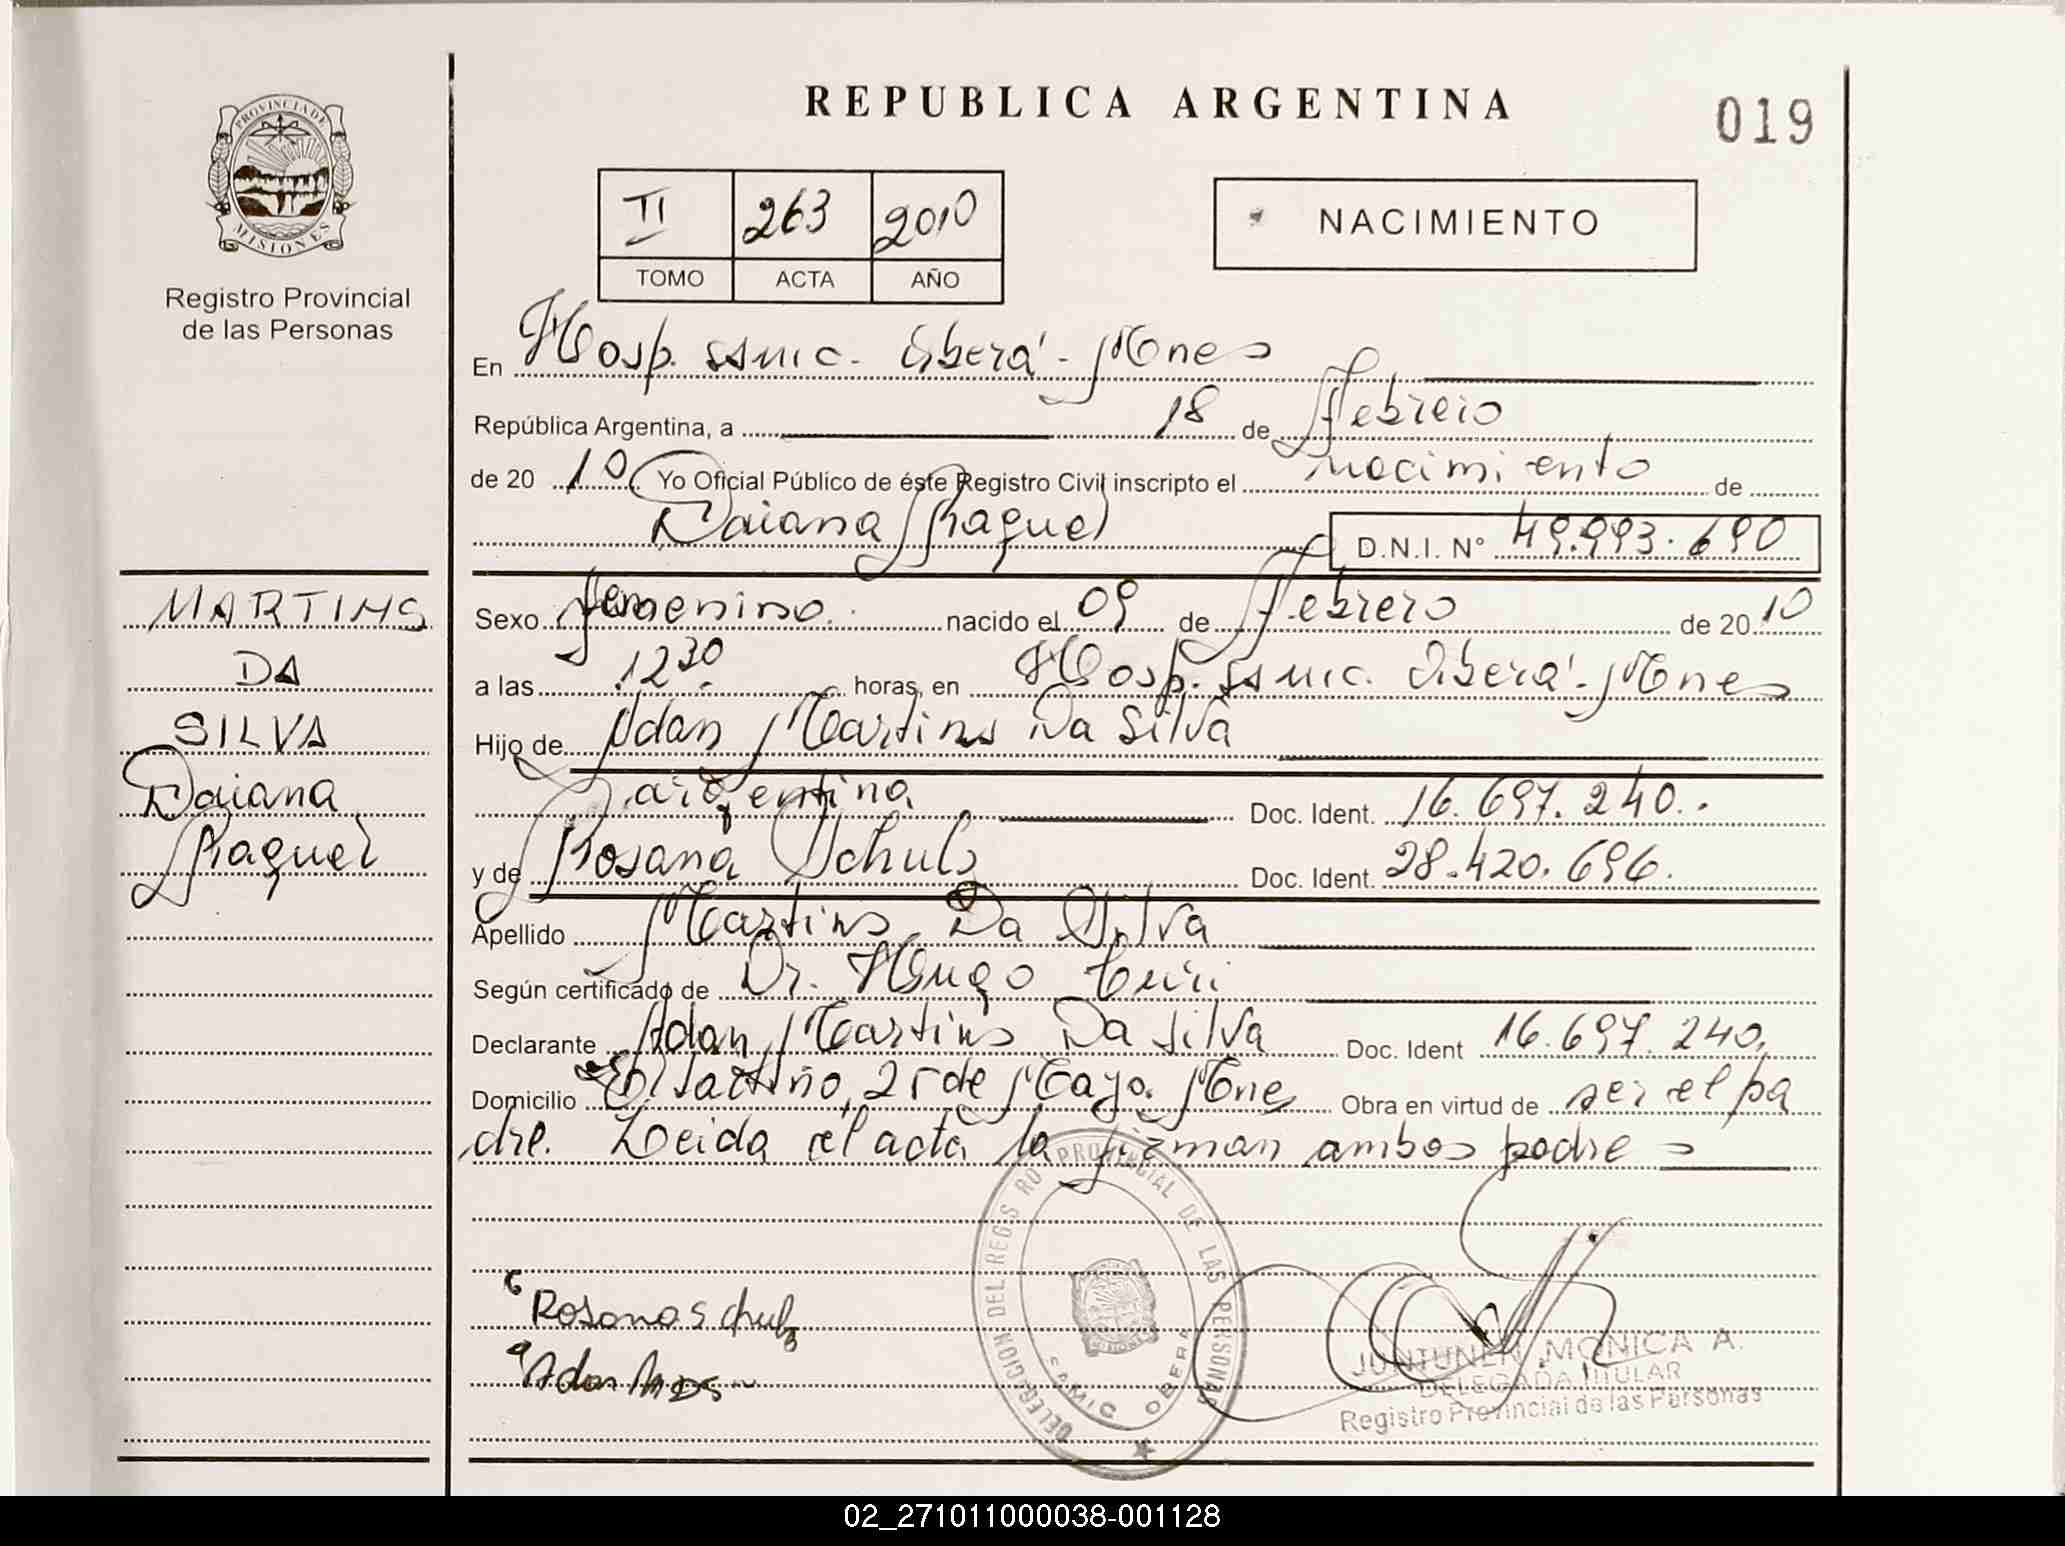 REPUBLICA ARGENTINA
019
PROVINCIA DE
MISIONES
Registro Provincial
de las Personas
II 263 2010
TOMO ACTA AÑO
NACIMIENTO
En Hosp. ssmic. Oberá - Mones
República Argentina, a 18 de Febrero
de 20 10 Yo Oficial Público de éste Registro Civil inscripto el nacimiento de
Daiana Raquel D.N.I. Nº 49.993.690
MARTINS
DA
SILVA
Daiana
Raquel
Sexo femenino. nacido el 09 de Febrero de 20 10
a las 12 30 horas, en Hosp. ssmic. Oberá - Mones
Hijo de Adan Martins Da Silva
argentina Doc. Ident. 16.697.240.
y de Rosana Schulz Doc. Ident. 28.420.696.
Apellido Martins Da Silva
Según certificado de Dr. Hugo
Declarante Adan Martins Da Silva Doc. Ident 16.697.240.
Domicilio 25 de Mayo. Mne Obra en virtud de ser el pa
dre. Leida el acta la firman ambos padres
Rosana Schulz
Adan MDS
DELEGACION DEL REGISTRO PROVINCIAL DE LAS PERSONAS
SAMIC OBERA
JUNTUNEN MONICA A.
DELEGADA TITULAR
Registro Provincial de las Personas
02_271011000038-001128